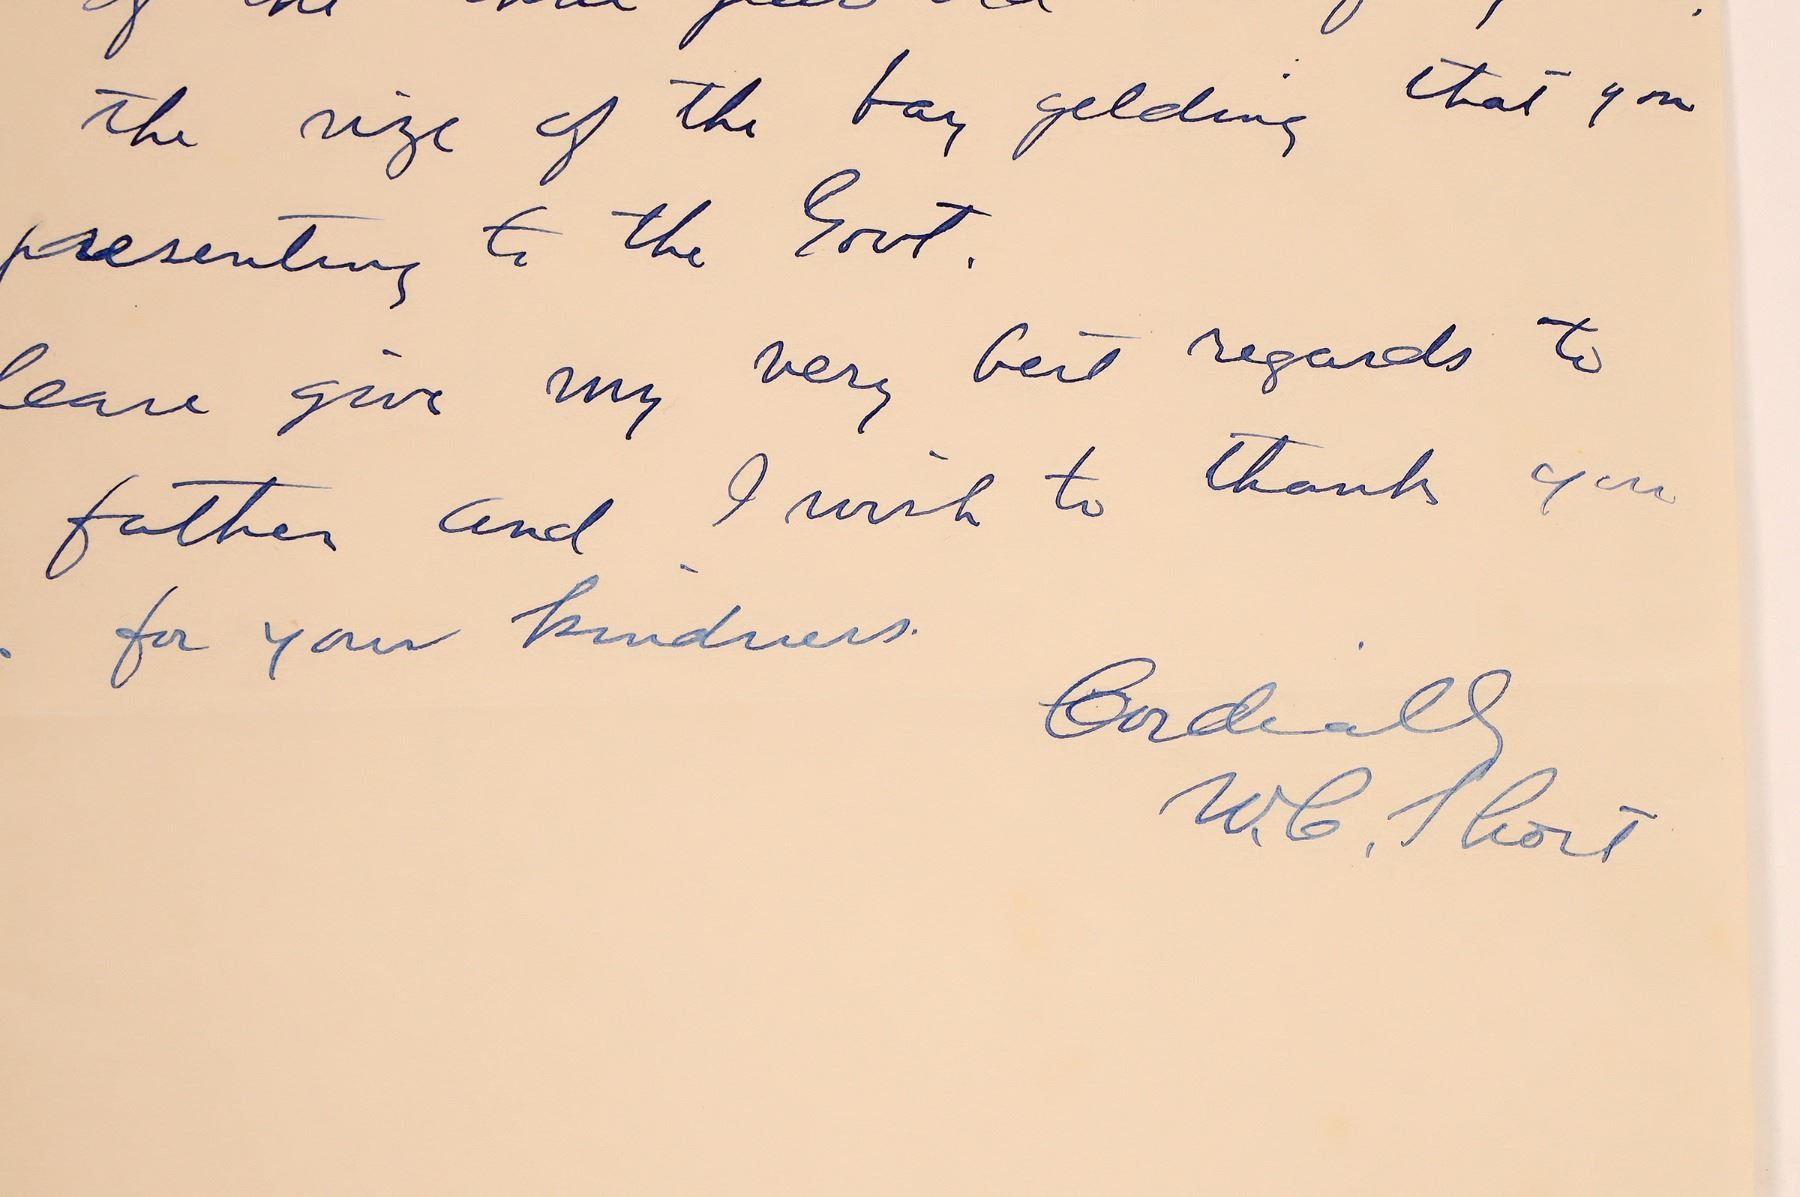 of the three year old
the size of the bay gelding that you
presenting to the Govt.
lease give my very best regards to
father and I wish to thank you
. for your kindness.
Cordially
W.C. Short